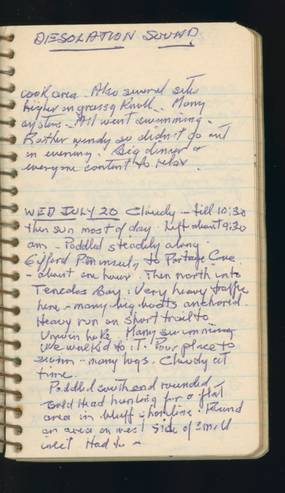 DESOLATION SOUND
cook area. Also several sites
higher on grassy knoll. Many
oysters. All went swimming.
Rather windy so didn't go out
in evening. Big dinner &
everyone content to relax.
WED JULY 20 Cloudy - till 10:30
then sun most of day. Left about 9:30
am - Paddled steadily along
Gifford Peninsula to Portage Cove
- about one hour. Then north into
Tenedos Bay. Very heavy traffic
here - many big boats anchored.
Heavy run on short trail to
Unwin Lake. Many swimming
We walked to T. Poor place to
swim - many logs. Cloudy at
time.
Paddled south and rounded
Bold Head hunting for a flat
area in bluff shoreline. Found
an area on west side of small
inlet. Had to